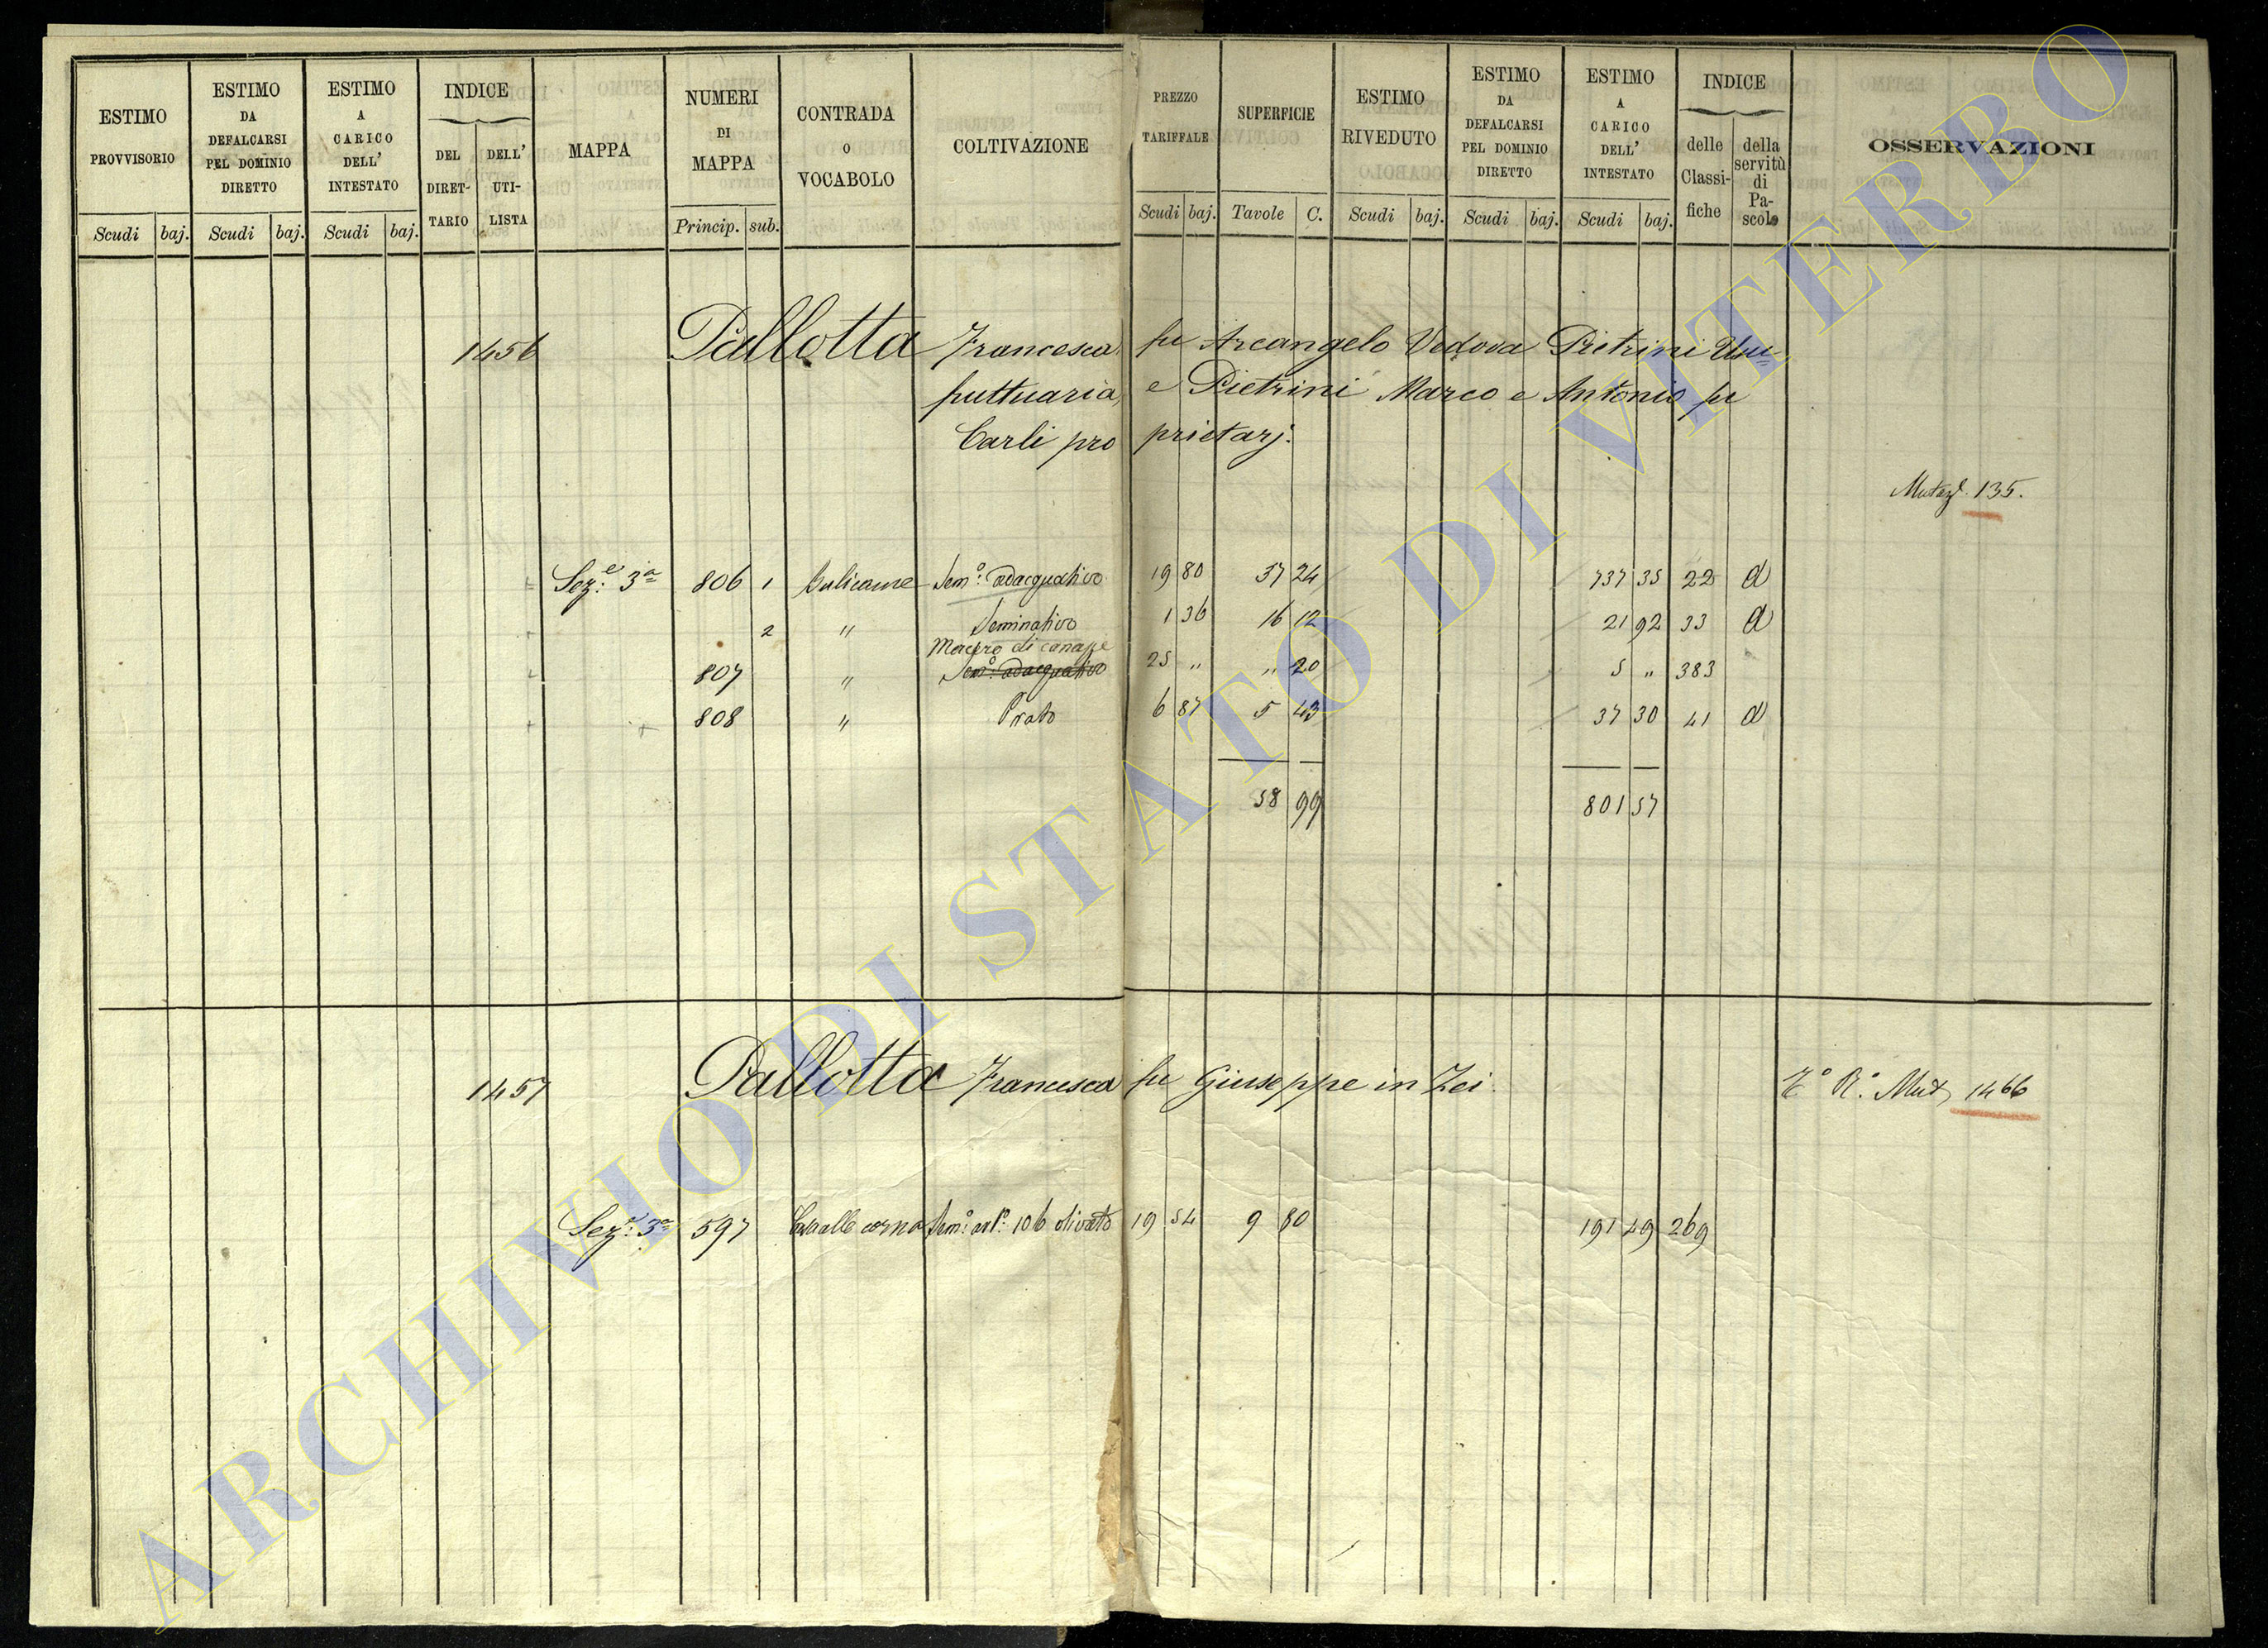 ESTIMO PROVVISORIO
ESTIMO DA DEFALCARSI PEL DOMINIO DIRETTO
ESTIMO A CARICO DELL' INTESTATO
INDICE
DEL DIRETTARIO
DELL' UTILISTA
MAPPA
NUMERI DI MAPPA
CONTRADA O VOCABOLO
COLTIVAZIONE
PREZZO TARIFFALE
SUPERFICIE
ESTIMO RIVEDUTO
ESTIMO DA DEFALCARSI PEL DOMINIO DIRETTO
ESTIMO A CARICO DELL' INTESTATO
INDICE
delle Classifiche
della servitù di Pascolo
OSSERVAZIONI
Scudi baj. Scudi baj. Scudi baj. Princip. sub. Scudi baj. Tavole C. Scudi baj. Scudi baj. Scudi baj.
1456 Pallotta Francesca fu Arcangelo Vedova Pietrini Usu=
fruttuaria, e Pietrini Marco e Antonio fu
Carli proprietarj.
Mutaz.e 135.
Sez.e 3a 806 1 Bulicame Sem.o adacquativo 19 80 37 24 737 35 22 a
2 " Seminativo 1 36 16 12 21 92 33 a
Macero di canape
807 " Sem.o adacquativo 25 " " 20 5 " 383
808 " Prato 6 87 5 43 37 30 41 a
58 99 801 57
1457 Pallotta Francesca fu Giuseppe in Zei.
R.o Mut, 1466
Sez.e 3a 597 Sem.o art.o 106 olivato 19 54 9 80 191 49 269
ARCHIVIO DI STATO DI VITERBO